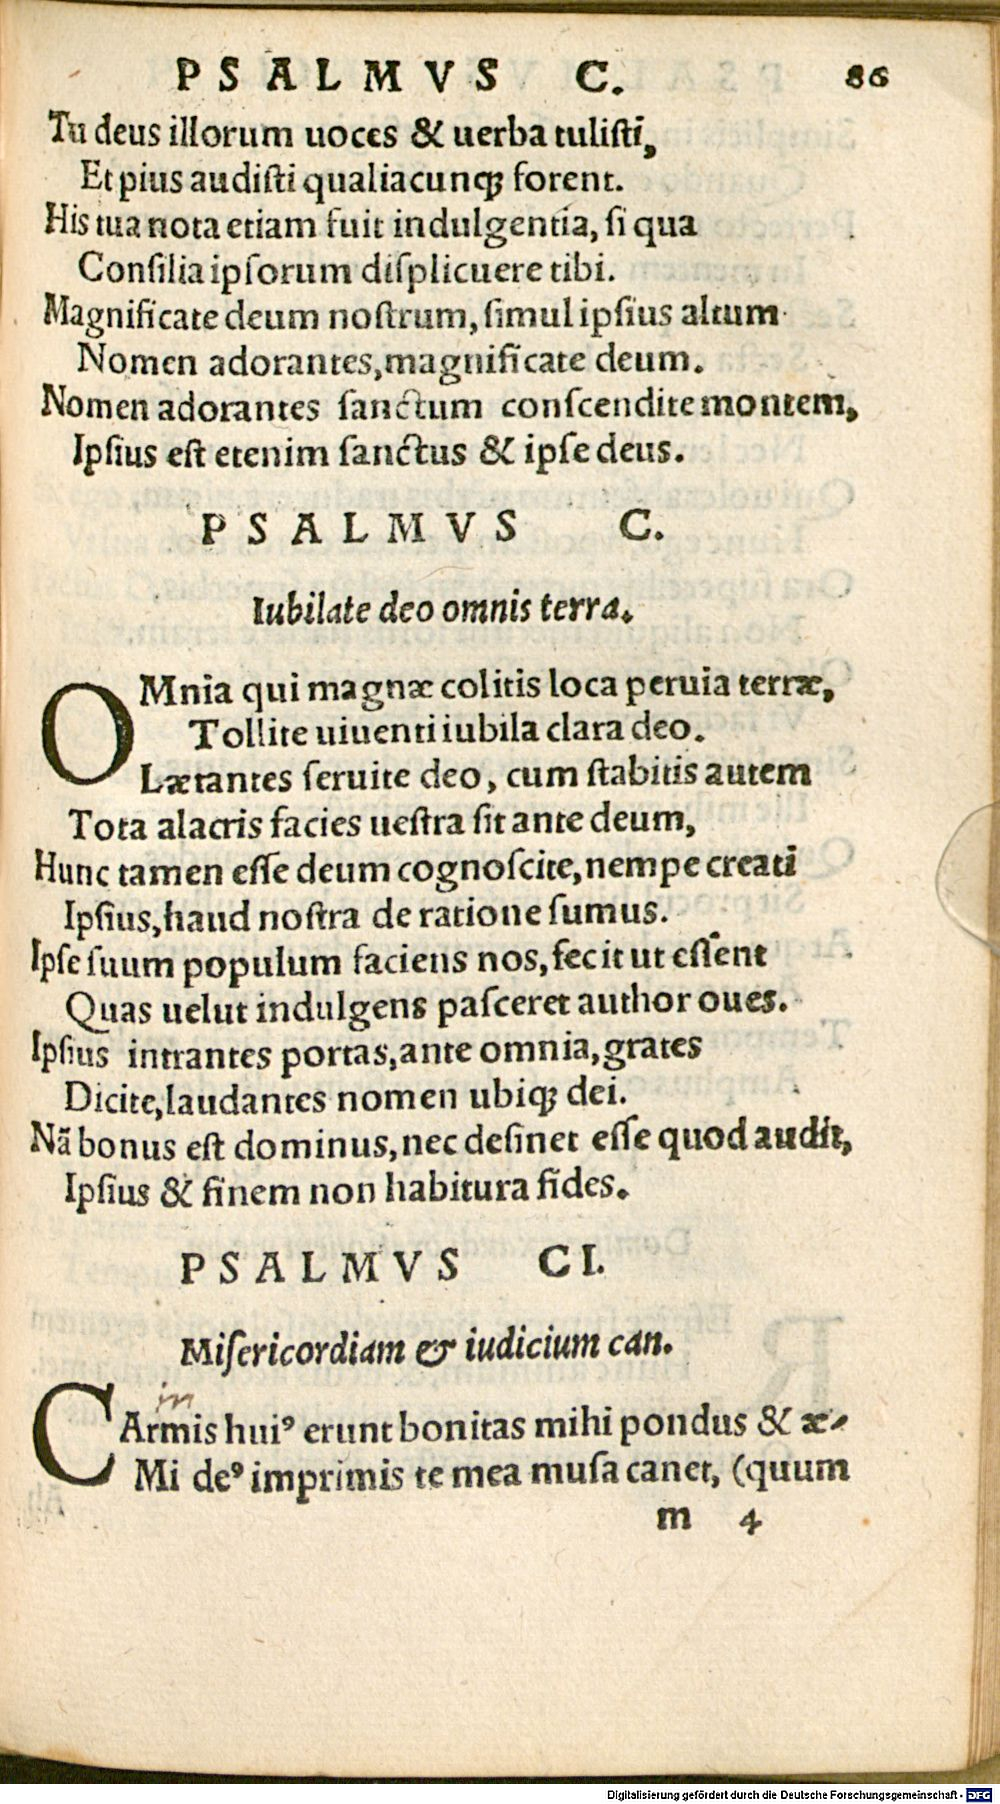 PSALMVS C. 86
Tu deus illorum uoces & uerba tulisti,
Et pius audisti qualiacunqꝫ forent.
His tua nota etiam fuit indulgentia, si qua
Consilia ipsorum displicuere tibi.
Magnificate deum nostrum, simul ipsius altum
Nomen adorantes, magnificate deum.
Nomen adorantes sanctum conscendite montem,
Ipsius est etenim sanctus & ipse deus.
PSALMVS C.
Iubilate deo omnis terra.
OMnia qui magnæ colitis loca peruia terræ,
Tollite uiuenti iubila clara deo.
Lætantes seruite deo, cum stabitis autem
Tota alacris facies uestra sit ante deum,
Hunc tamen esse deum cognoscite, nempe creati
Ipsius, haud nostra de ratione sumus.
Ipse suum populum faciens nos, fecit ut essent
Quas uelut indulgens pasceret author oues.
Ipsius intrantes portas, ante omnia, grates
Dicite, laudantes nomen ubiqꝫ dei.
Nã bonus est dominus, nec desinet esse quod audit,
Ipsius & finem non habitura fides.
PSALMVS CI.
Misericordiam & iudicium can.
in
CArmis huiꝰ erunt bonitas mihi pondus & æ-
Mi deꝰ imprimis te mea musa canet, (quum
m 4
Digitalisierung gefördert durch die Deutsche Forschungsgemeinschaft - DFG